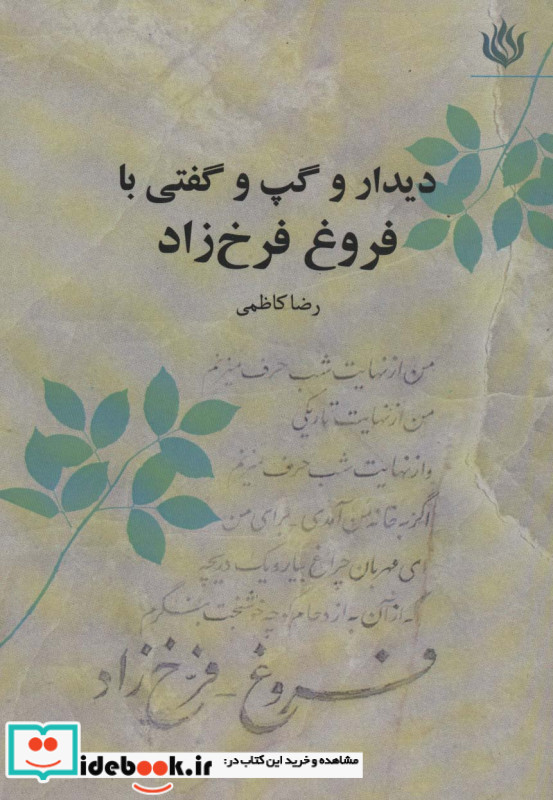 دیدار و گپ و گفتی با
فروغ فرخ‌زاد
رضا کاظمی
من از نهایت شب حرف میزنم
من از نهایت تاریکی
و از نهایت شب حرف میزنم
اگر به خانه من آمدی - برای من
ای مهربان چراغ بیار و یک دریچه
که از آن به ازدحام کوچه خوشبخت بنگرم
فروغ - فرّخ زاد
مشاهده و خرید این کتاب در:
idebook.ir